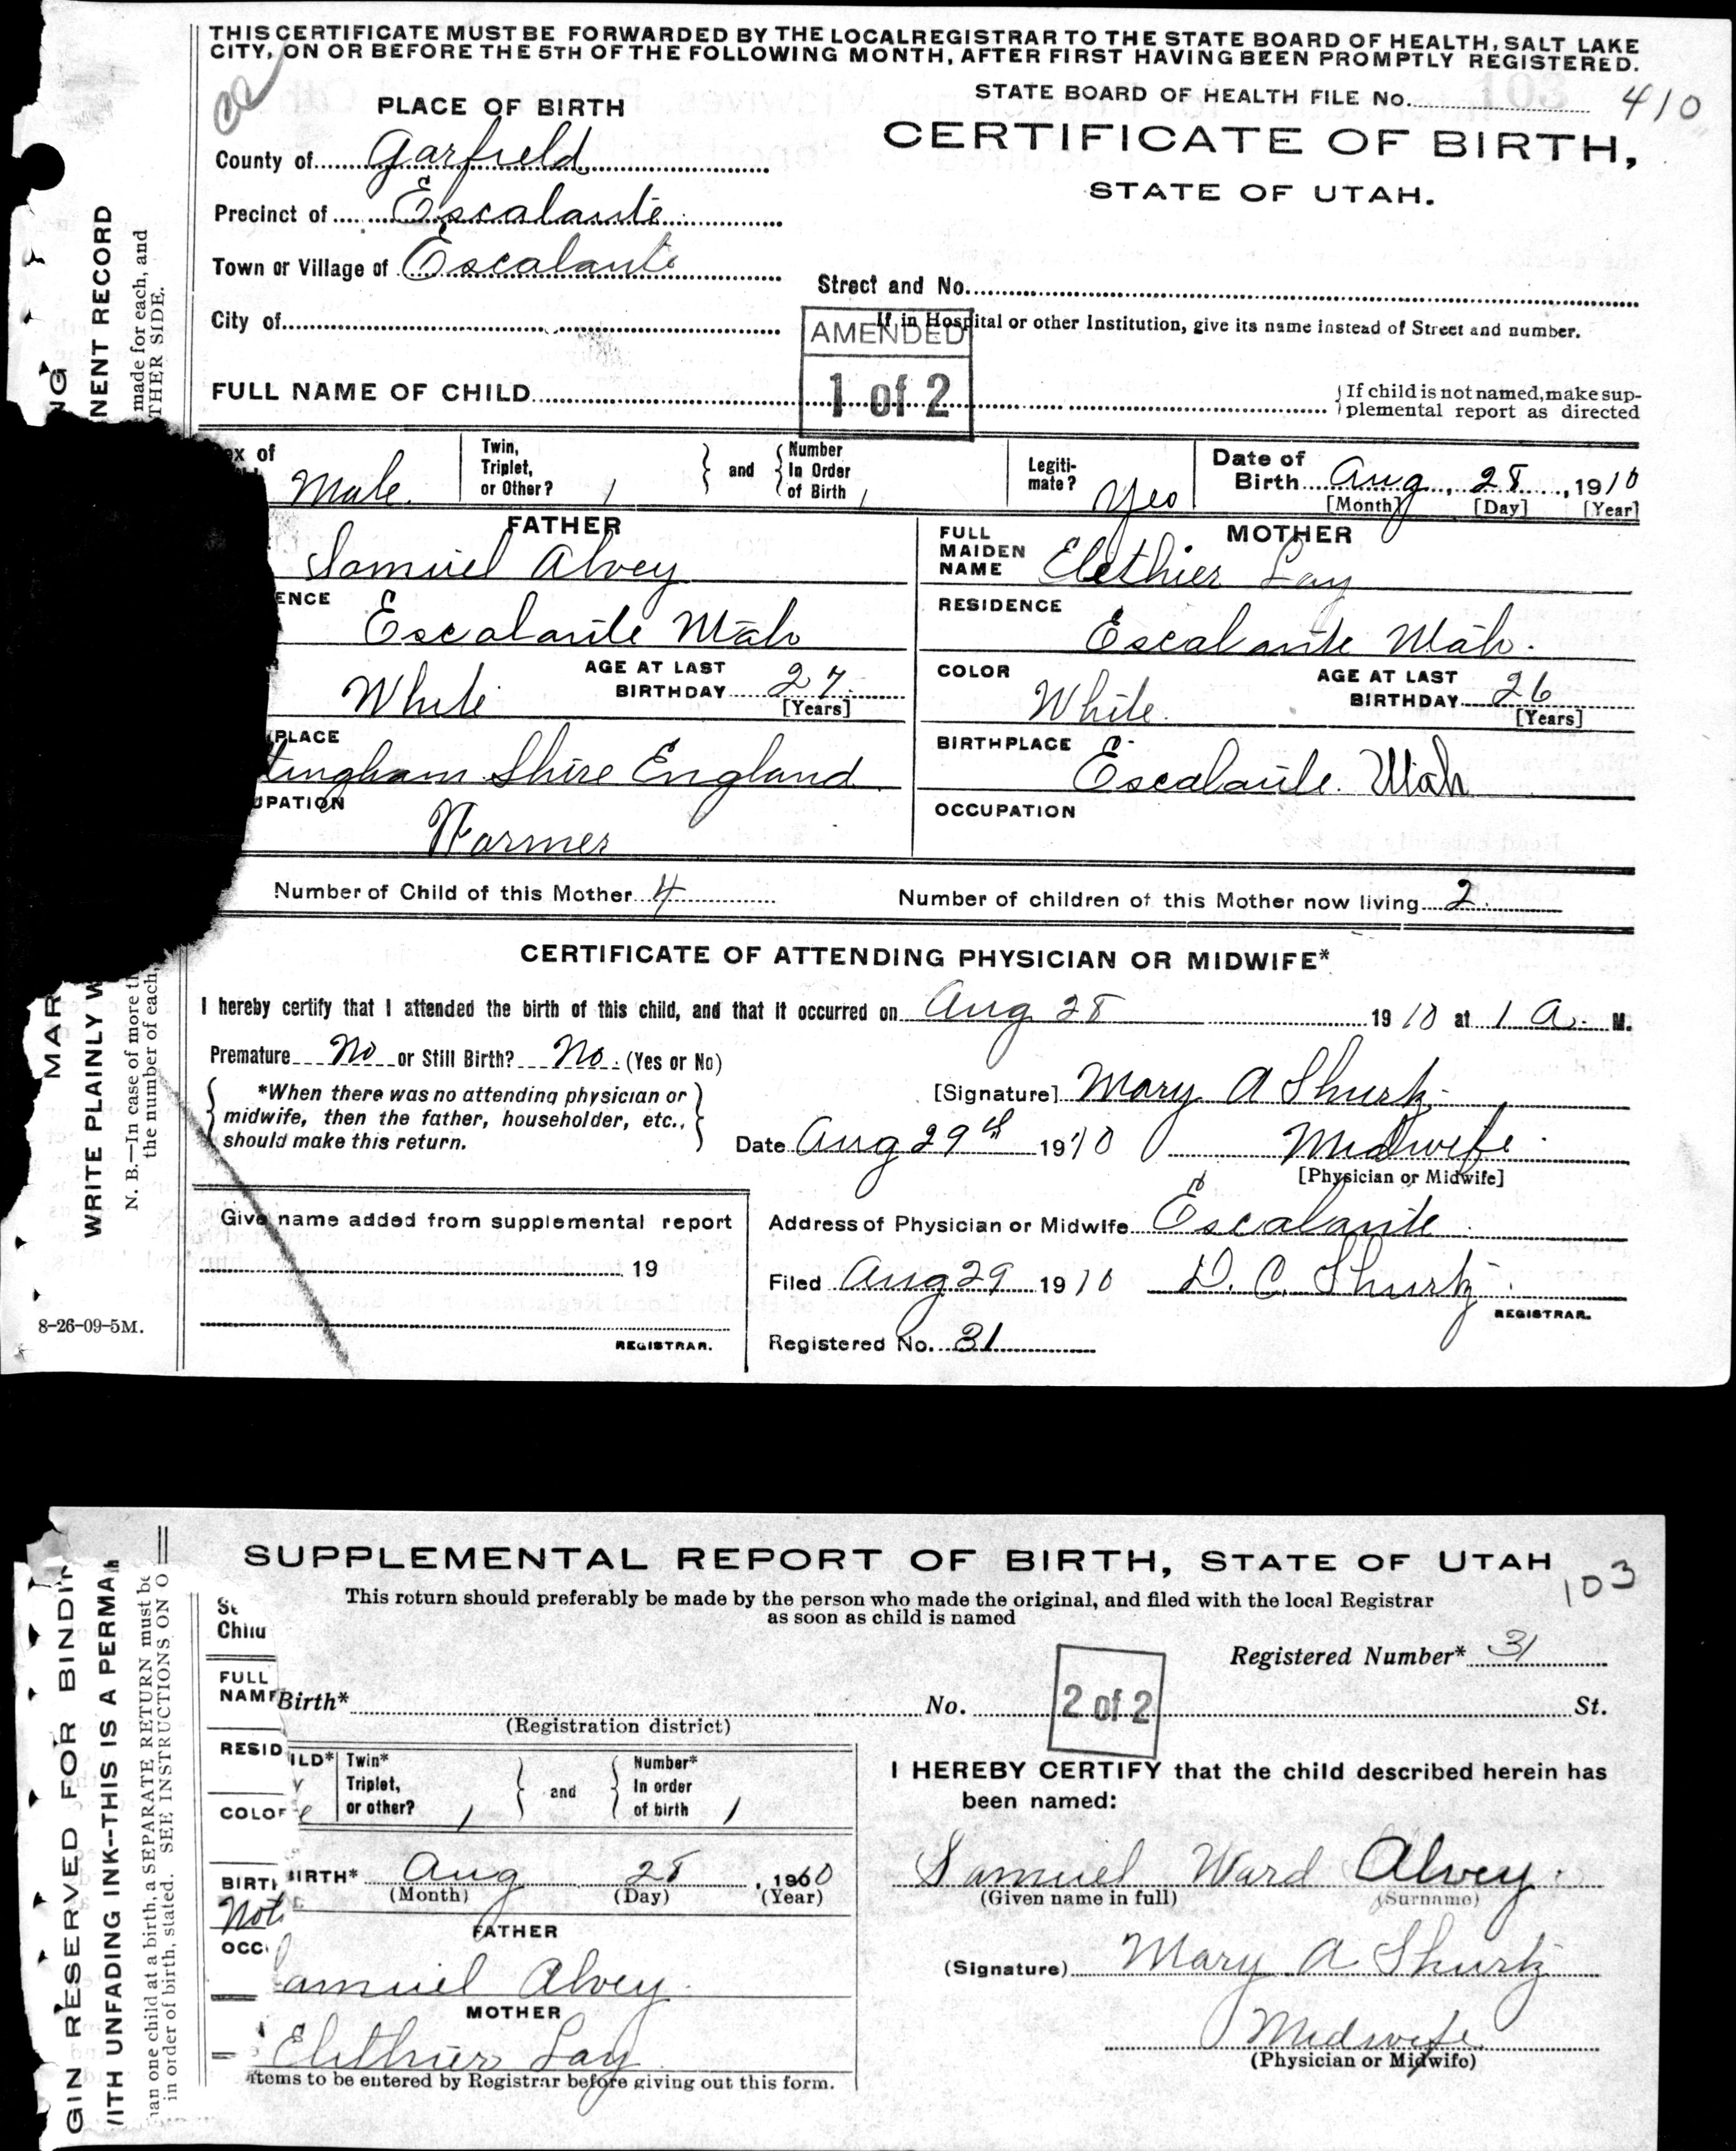 THIS CERTIFICATE MUST BE FORWARDED BY THE LOCAL REGISTRAR TO THE STATE BOARD OF HEALTH, SALT LAKE
CITY, ON OR BEFORE THE 5TH OF THE FOLLOWING MONTH, AFTER FIRST HAVING BEEN PROMPTLY REGISTERED.
PLACE OF BIRTH
STATE BOARD OF HEALTH FILE No. 103 410
CERTIFICATE OF BIRTH,
STATE OF UTAH.
County of Garfield
Precinct of Escalante
Town or Village of Escalante
Street and No.
City of
If in Hospital or other Institution, give its name instead of Street and number.
AMENDED
1 of 2
FULL NAME OF CHILD
If child is not named, make sup-
plemental report as directed
ex of Male
Twin, Triplet, or Other? 1 and Number In Order of Birth 1
Legiti-mate? Yes
Date of Birth Aug 28, 1910
[Month] [Day] [Year]
FATHER
Samuel Alvey
ENCE
Escalante Utah
White AGE AT LAST BIRTHDAY 27
[Years]
PLACE
tingham Shire England
UPATION
Farmer
MOTHER
FULL MAIDEN NAME Elethier Lay
RESIDENCE
Escalante Utah.
COLOR White AGE AT LAST BIRTHDAY 26
[Years]
BIRTHPLACE
Escalante. Utah
OCCUPATION
Number of Child of this Mother 4 Number of children of this Mother now living 2
CERTIFICATE OF ATTENDING PHYSICIAN OR MIDWIFE*
I hereby certify that I attended the birth of this child, and that it occurred on Aug 28 1910 at 1 A. M.
Premature No or Still Birth? No. (Yes or No)
*When there was no attending physician or
midwife, then the father, householder, etc.,
should make this return.
[Signature] Mary A Shurtz
Date Aug 29th 1910 Midwife
[Physician or Midwife]
Address of Physician or Midwife Escalante
Filed Aug 29 1910 D. C. Shurtz
REGISTRAR.
Registered No. 31
Give name added from supplemental report
19
REGISTRAR.
NENT RECORD
made for each, and
THER SIDE.
NG
MAR
WRITE PLAINLY W
N. B.—In case of more th
the number of each,
8-26-09-5M.
SUPPLEMENTAL REPORT OF BIRTH, STATE OF UTAH
103
This return should preferably be made by the person who made the original, and filed with the local Registrar
as soon as child is named
Registered Number* 31
Birth* No. St.
(Registration district)
2 of 2
ILD* Twin* Triplet, or other? 1 and Number* In order of birth 1
BIRTH* Aug 28, 1910
(Month) (Day) (Year)
FATHER
amuel Alvey
MOTHER
Elethier Lay
items to be entered by Registrar before giving out this form.
I HEREBY CERTIFY that the child described herein has
been named:
Samuel Ward Alvey
(Given name in full) (Surname)
(Signature) Mary A Shurtz
Midwife
(Physician or Midwife)
FULL
NAME
RESID
COLOR
BIRTH
Nott
OCC
GIN RESERVED FOR BINDIN
WITH UNFADING INK--THIS IS A PERMAN
han one child at a birth, a SEPARATE RETURN must be
in order of birth, stated. SEE INSTRUCTIONS ON O